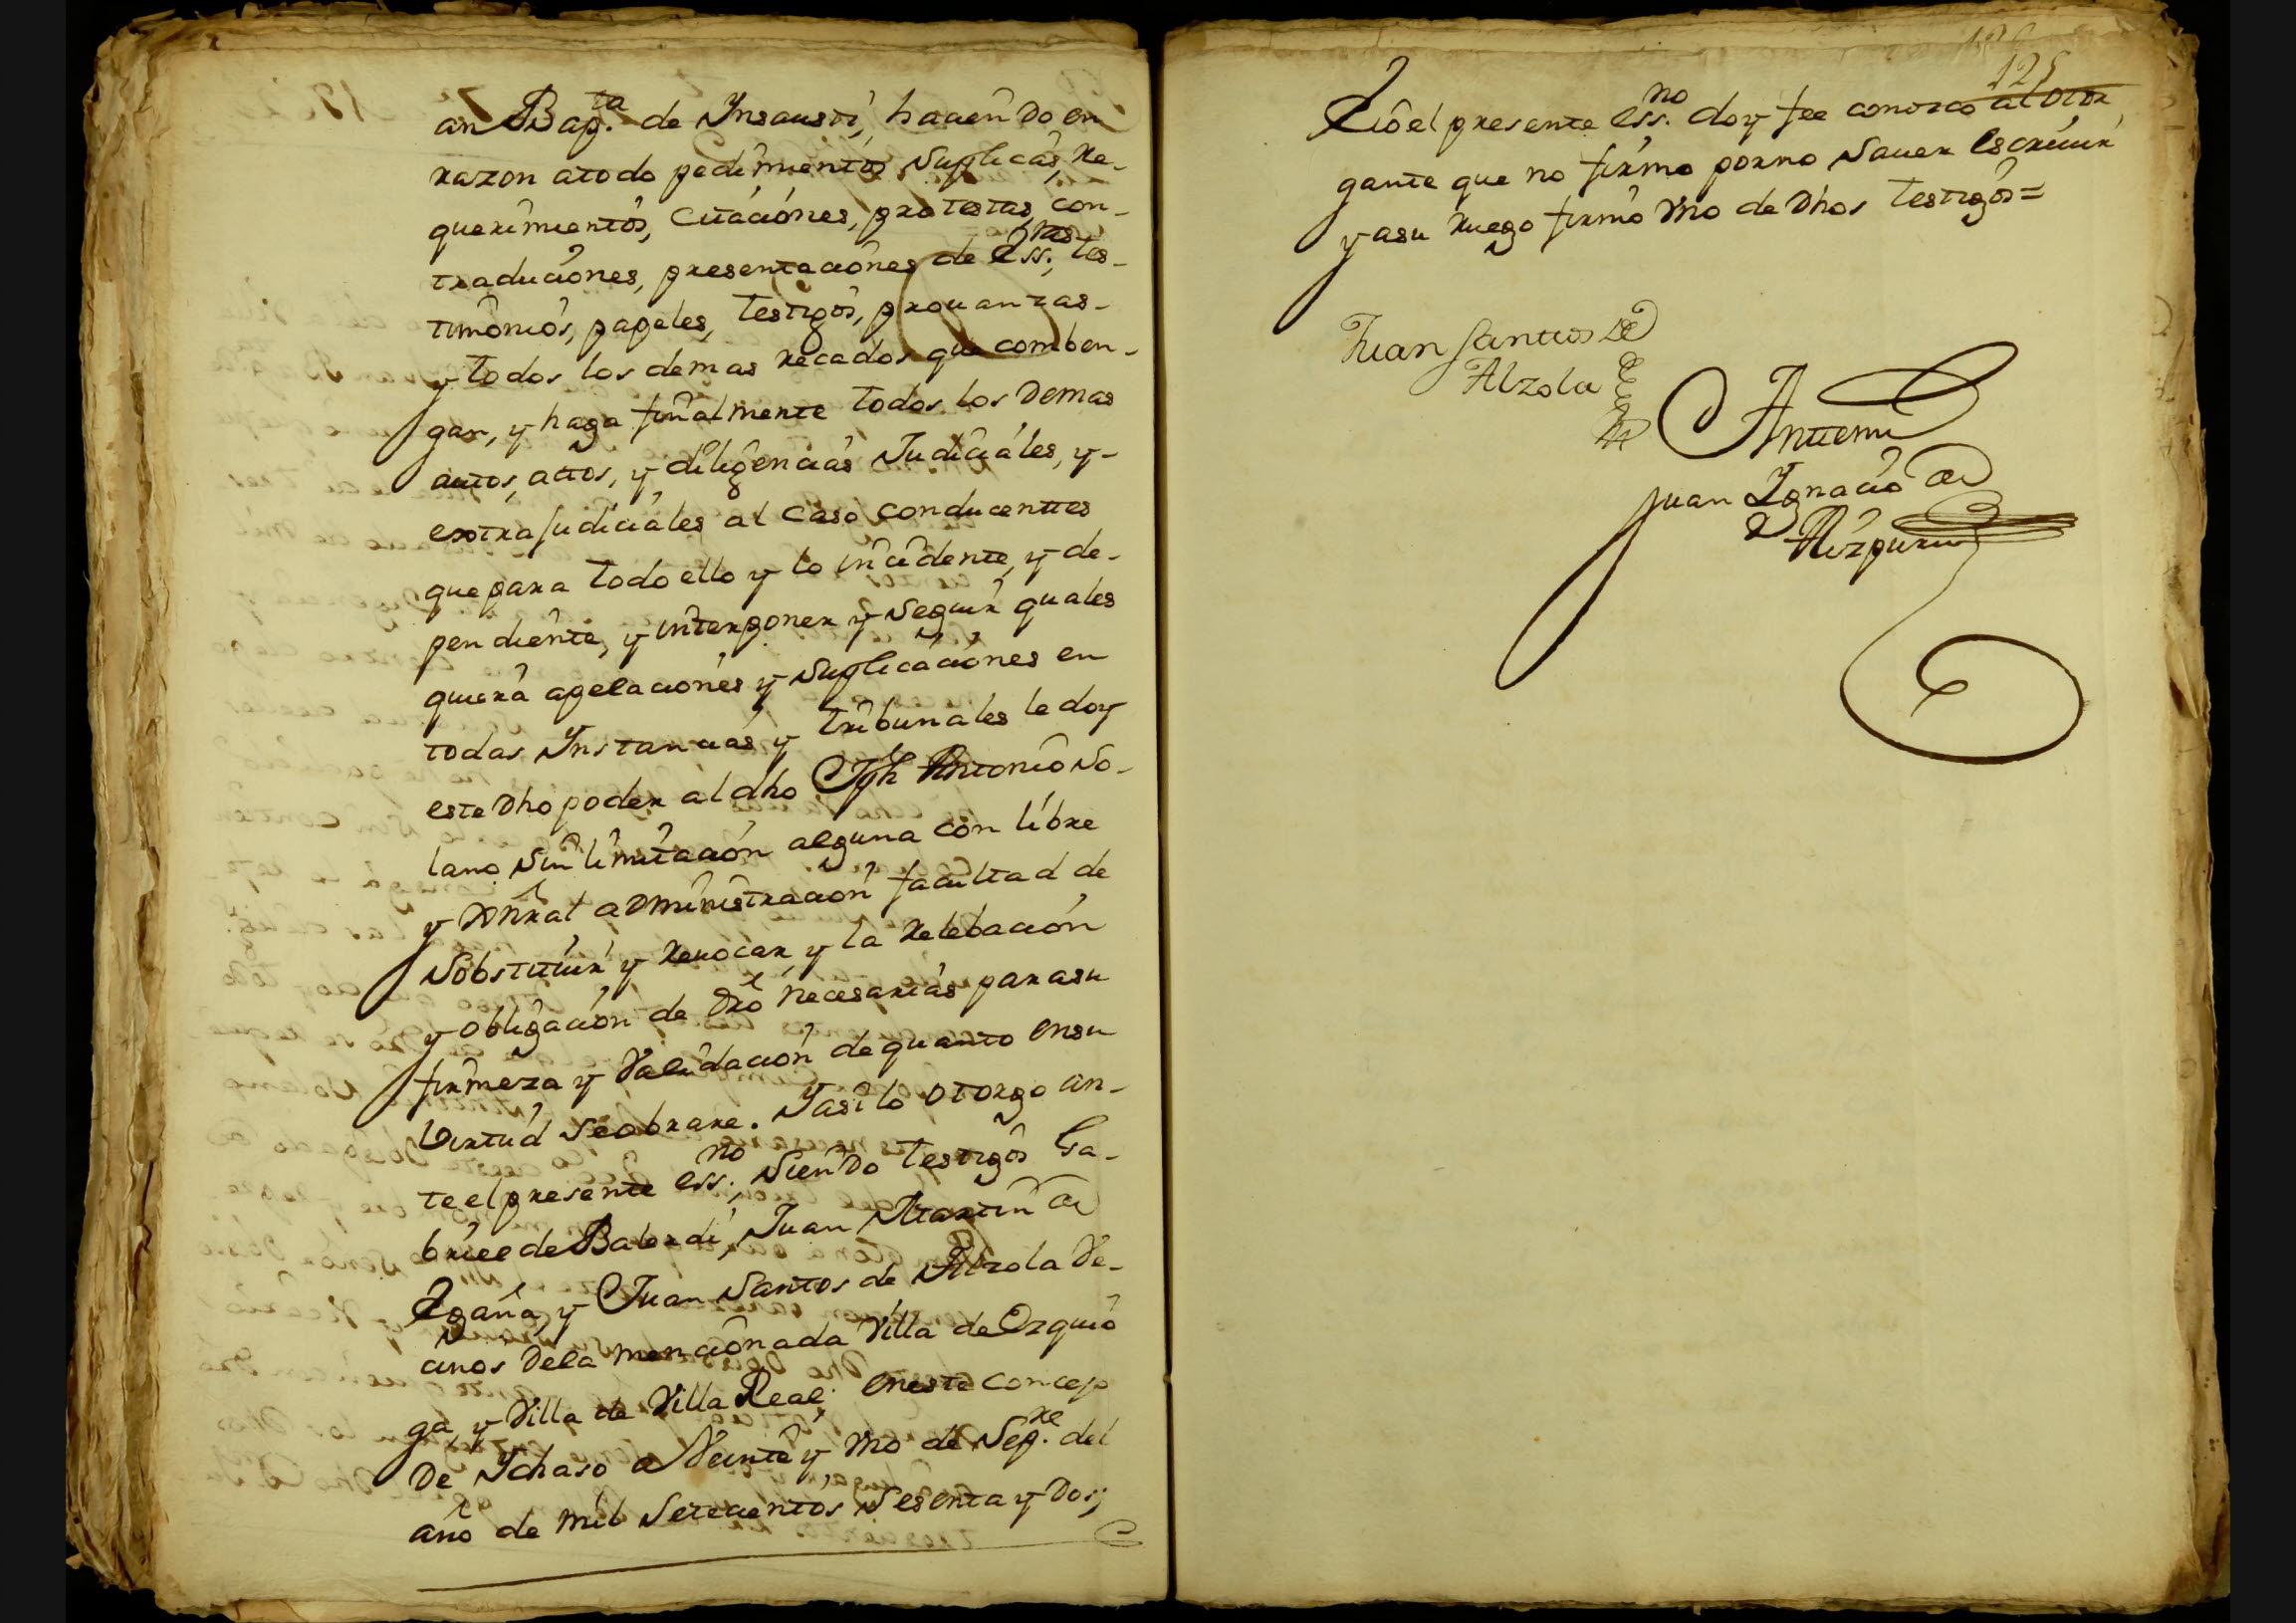 an Bap.ta de Ynsausti, haciendo en
razon atodo pedimientos Suplicas, Re-
querimientos, Citaciones, protestas, con-
traduciones, presentaciones de Ess.ras, tes-
timonios, papeles, testigos, prouanzas-
y todos los demas recados que comben-
gan, y haga finalmente todos los Demas
autos, attos, y diligencias Judiciales, y-
extrajudiciales al Caso conducenttes
que para todo ello y lo incidente, y de-
pendiente, y interponer y Seguir quales
quiera apelaciones y Suplicaciones en
todas Ynstancias y tribunales le doy
este Dho poder al dho Jph Antonio So-
lano Sin limitacion alguna con libre
y Gnral administracion facultad de
Sobstituir y Reuocar, y la Relebacion
y obligacion de Dro necesarias para su
firmeza y Validacion de quanto ensu
Virtud Seobrare. Yasi lo otorgo an-
te el presente ess.no, Siendo testigos Ga-
briel de Balerdi, Juan Martin de
Egaña, y Juan Santos de Alzola Ve-
cinos Dela mencionada Villa de Ezquio
ga, y Villa de Villa Real; eneste concejo
De Ychaso a Veinte y Vno de Sep.re del
año de mil Setecientos Sesenta y Dos;
125
E io el presente ess.no doy fee conozco al otor
gante que no firmo porno Sauer escriuir
y asu ruego firmo Vno de Dhos testigos=
Juan Santtos de
Alzola
Anttemi
Juan Ygnacio de
Aizpuru